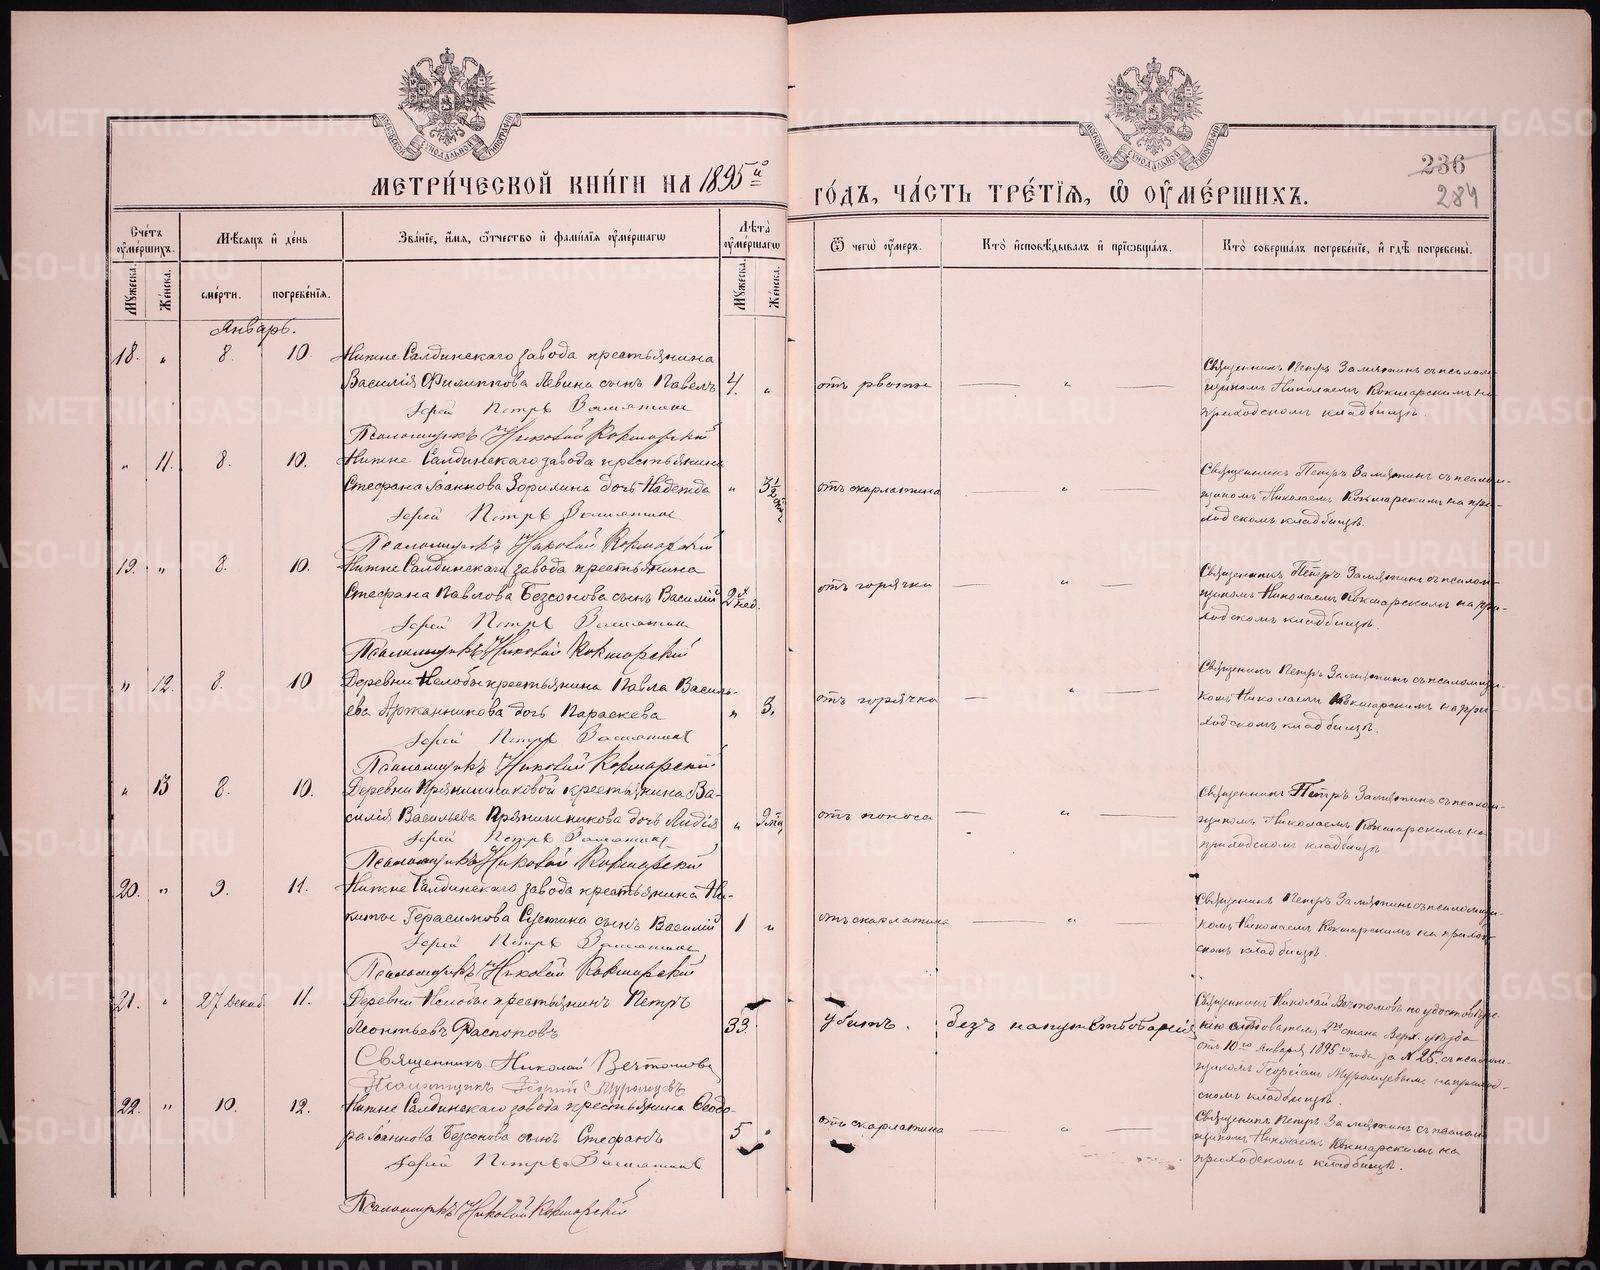 МЕТРИ́ЧЕСКОЙ КНИ́ГИ НА 1895й
ГО́ДЪ, ЧА́СТЬ ТРЕ́ТІѦ, Ѡ҆ ОУ҆МЕ́РШИХЪ.
236
284
Сче́тъ оу҆ме́ршихъ.
Мѣ́сѧцъ и҆ де́нь
Зва́нїе, и҆́мѧ, ѻ҆́тчество и҆ фами́лїѧ оу҆ме́ршагѡ
Лѣ́та оу҆ме́ршагѡ
Ѿ чегѡ̀ оу҆́меръ.
Кто̀ и҆сповѣ́дывалъ и҆ прїѡбща́лъ.
Кто̀ соверша́лъ погребе́нїе, и҆ гдѣ̀ погребены̀.
Мꙋ́жеска.
Же́нска.
сме́рти.
погребе́нїѧ.
Мꙋ́жеска.
Же́нска.
Январь.
18. „ 8. 10. Нижне Салдинскаго завода крестьянина
Василія Филиппова Левина сынъ Павелъ 4. „ отъ рвоты — „ —
Іерей Петръ Замятинъ
Псаломщикъ Николай Кокшарскій
Священникъ Петръ Замятинъ съ псалом-
щикомъ Николаемъ Кокшарскимъ на
приходскомъ кладбищѣ.
„ 11. 8. 10. Нижне Салдинскаго завода крестьянина
Стефана Іоаннова Зорихина дочь Надежда „ 3 1/2 отъ скарлатина — „ —
Іерей Петръ Замятинъ
Псаломщикъ Николай Кокшарскій
Священникъ Петръ Замятинъ съ псалом-
щикомъ Николаемъ Кокшарскимъ на при-
ходскомъ кладбищѣ.
19. „ 8. 10. Нижне Салдинскаго завода крестьянина
Стефана Павлова Безсонова сынъ Василій 2х нед. отъ горячка — „ —
Іерей Петръ Замятинъ
Псаломщикъ Николай Кокшарскій
Священникъ Петръ Замятинъ съ псалом-
щикомъ Николаемъ Кокшарскимъ на при-
ходскомъ кладбищѣ.
„ 12. 8. 10 Деревни Нелобы крестьянина Павла Василь-
ева Аржанникова дочь Параскева „ 3. отъ горячка — „ —
Іерей Петръ Замятинъ
Псаломщикъ Николай Кокшарскій
Священникъ Петръ Замятинъ съ псаломщи-
комъ Николаемъ Кокшарскимъ на при-
ходскомъ кладбищѣ.
„ 13 8. 10. Деревни Прянишниковой крестьянина Ва-
силія Васильева Прянишникова дочь Лидія „ 9 отъ поноса — „ —
Іерей Петръ Замятинъ
Псаломщикъ Николай Кокшарскій
Священникъ Петръ Замятинъ съ псалом-
щикомъ Николаемъ Кокшарскимъ на
приходскомъ кладбищѣ
20. „ 9. 11. Нижне Салдинскаго завода крестьянина Ни-
киты Герасимова Сустина сынъ Василій 1 „ отъ скарлатина — „
Іерей Петръ Замятинъ
Псаломщикъ Николай Кокшарскій
Священникъ Петръ Замятинъ съ псаломщи-
комъ Николаемъ Кокшарскимъ на приход-
скомъ кладбищѣ.
21. „ 27 Декаб 11. Деревни Нелобы крестьянинъ Петръ
Леонтьевъ Распоповъ 33. убитъ. Безъ напутствованія
Священникъ Николай Вечтомовъ
Псаломщикъ Георгій Мурзинцевъ
Священникъ Николай Вечтомовъ по удостовѣре-
нію слѣдователя 2го стана Верх. уѣзда
отъ 10го января 1895го года за № 25. съ псалом-
щикомъ Георгіемъ на приход-
скомъ кладбищѣ.
22. „ 10. 12. Нижне Салдинскаго завода крестьянина Ѳеодо-
ра Іоаннова Безсонова сынъ Стефанъ 5 „ отъ скарлатина — „ —
Іерей Петръ Замятинъ
Псаломщикъ Николай Кокшарскій
Священникъ Петръ Замятинъ съ псалом-
щикомъ Николаемъ Кокшарскимъ на
приходскомъ кладбищѣ.
METRIKI.GASO-URAL.RU